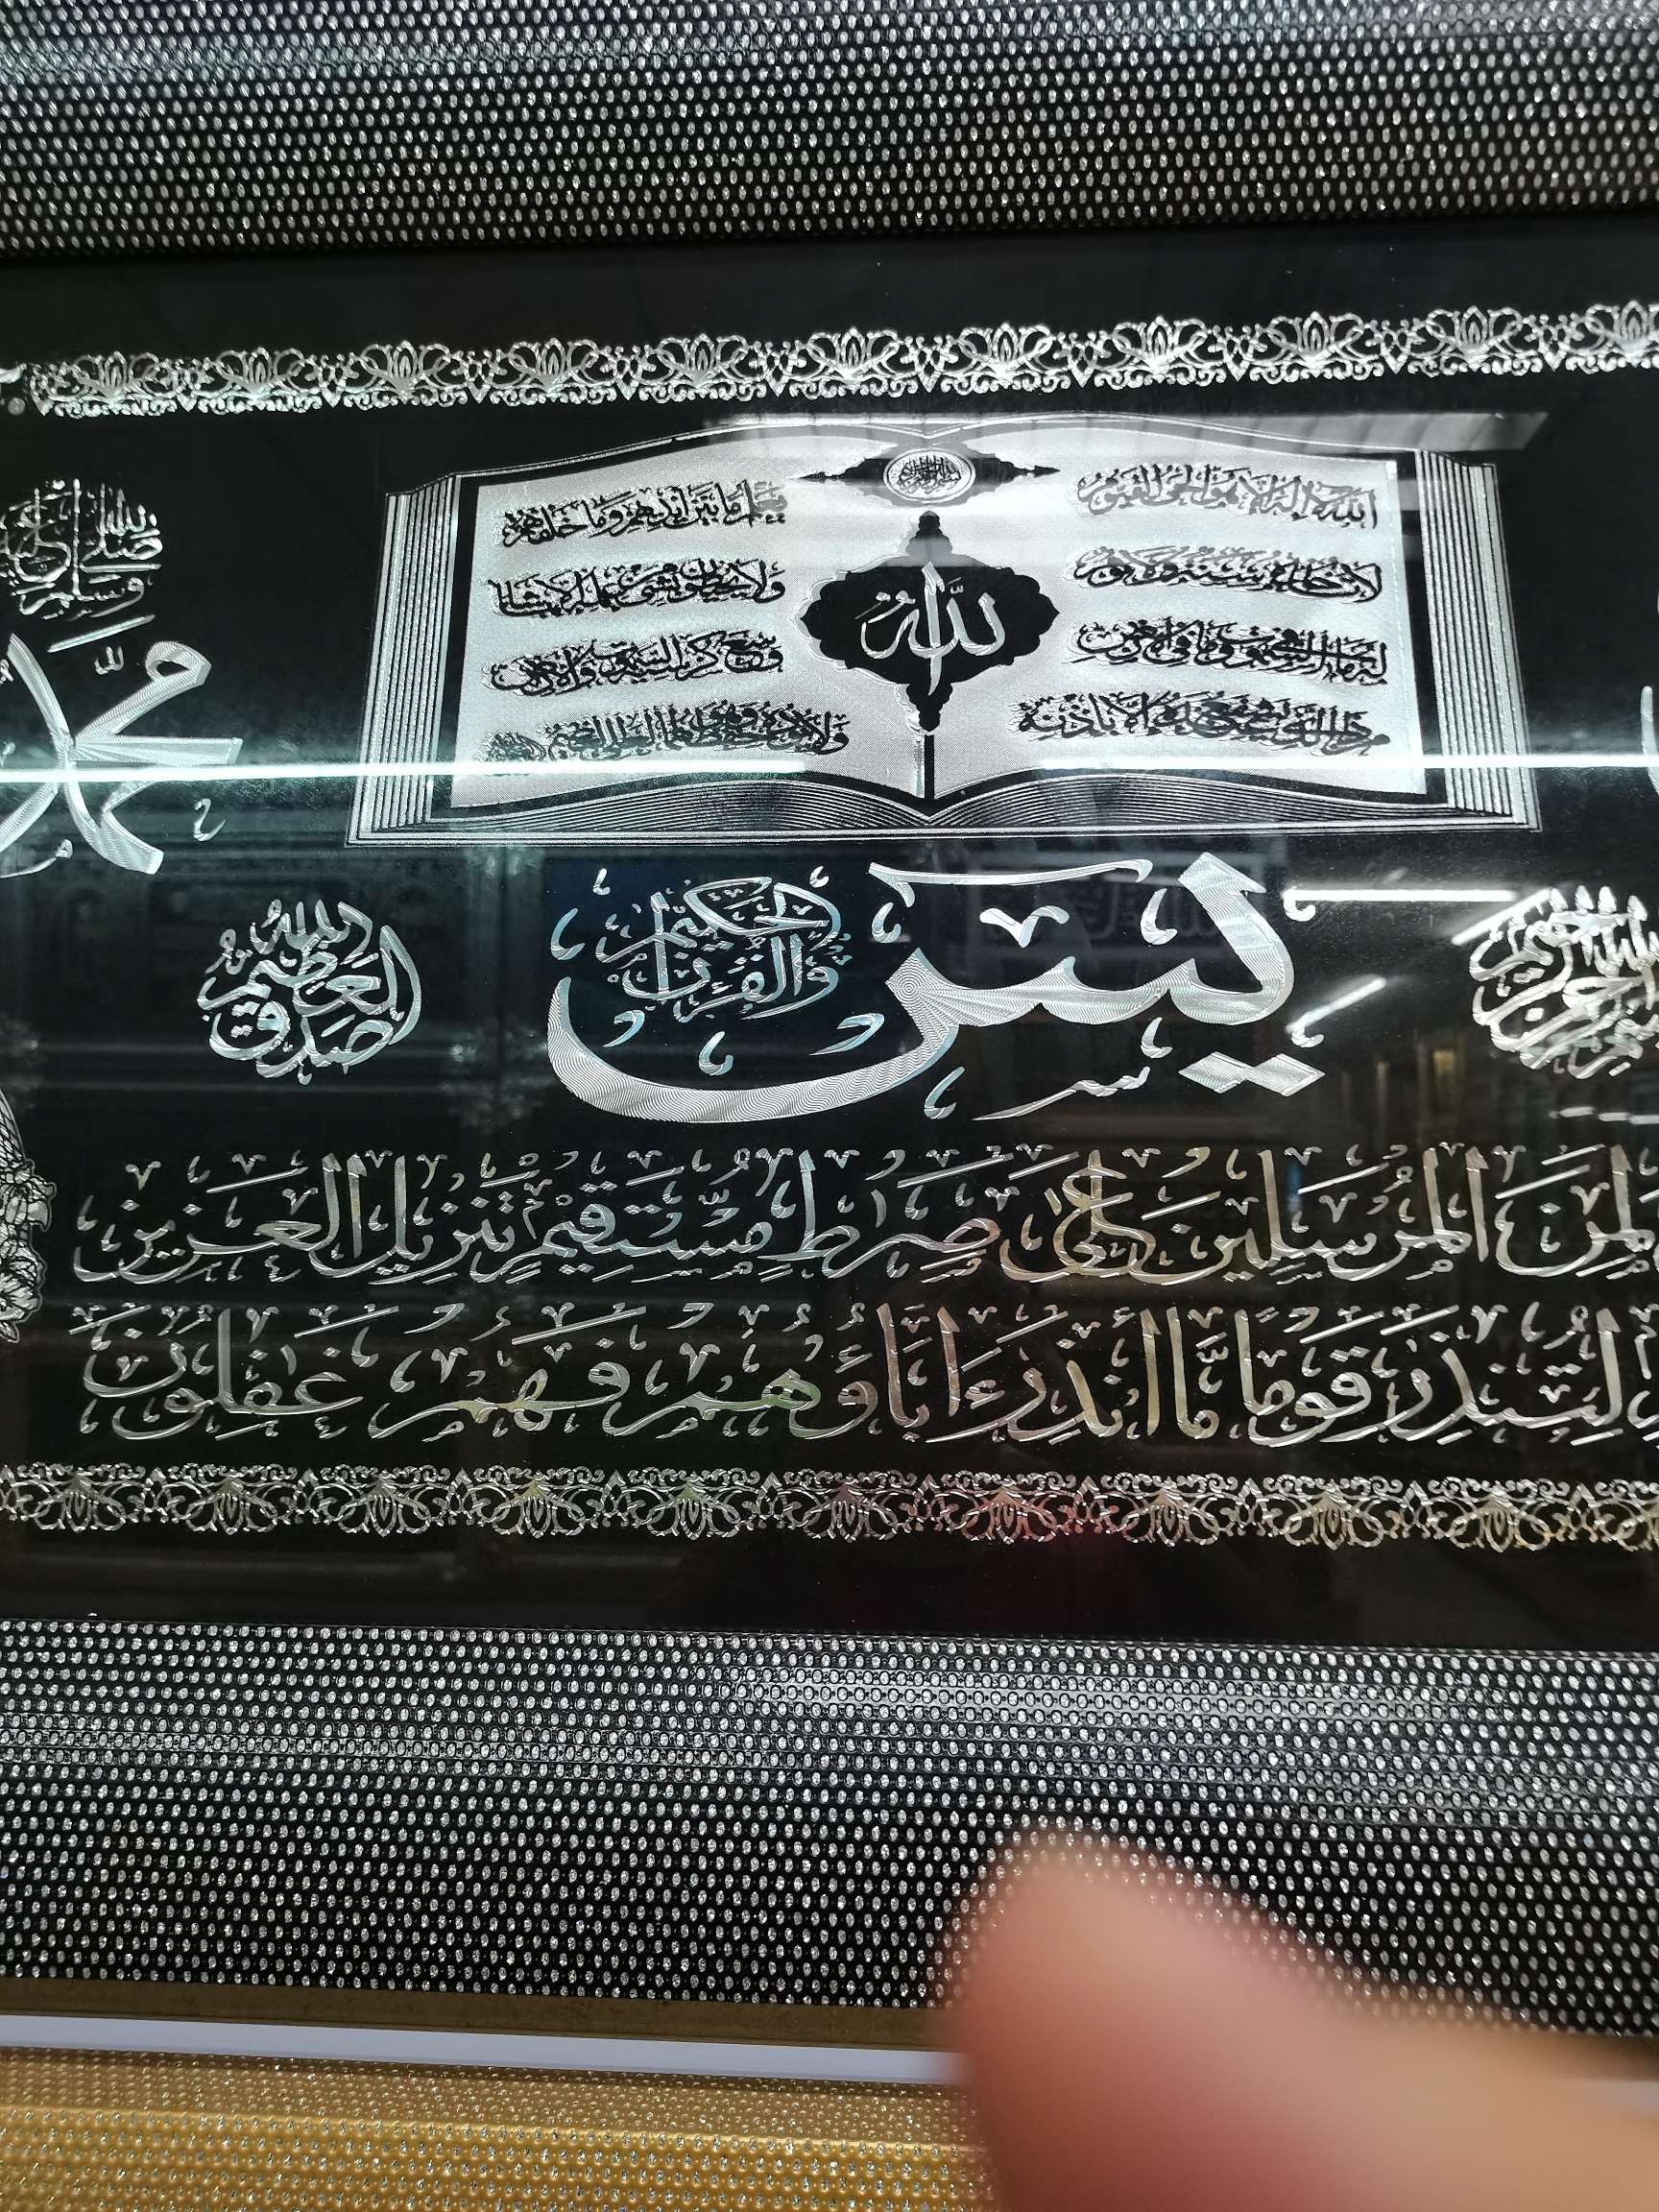 صلى الله عليه وسلم
محمد
الله لا إله إلا هو الحي القيوم
لا تأخذه سنة ولا نوم
له ما في السموات وما في الأرض
من ذا الذي يشفع عنده إلا بإذنه
الله
يعلم ما بين أيديهم وما خلفهم
ولا يحيطون بشيء من علمه إلا بما شاء
وسع كرسيه السموات والأرض
ولا يؤده حفظهما وهو العلي العظيم
بسم الله الرحمن الرحيم
يس والقرءان الحكيم
صدق الله العظيم
لمن المرسلين على صرط مستقيم تنزيل العزيز
لتنذر قوما ما أنذر ءاباؤهم فهم غفلون